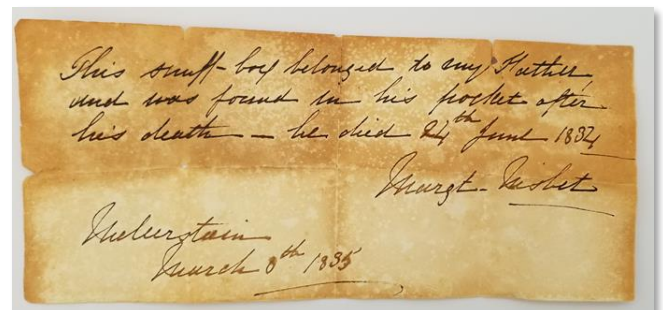 This snuff-box belonged to my Father,
and was found in his pocket after
his death — he died 24th June 1834
Margt. Nisbet
March 8th 1835